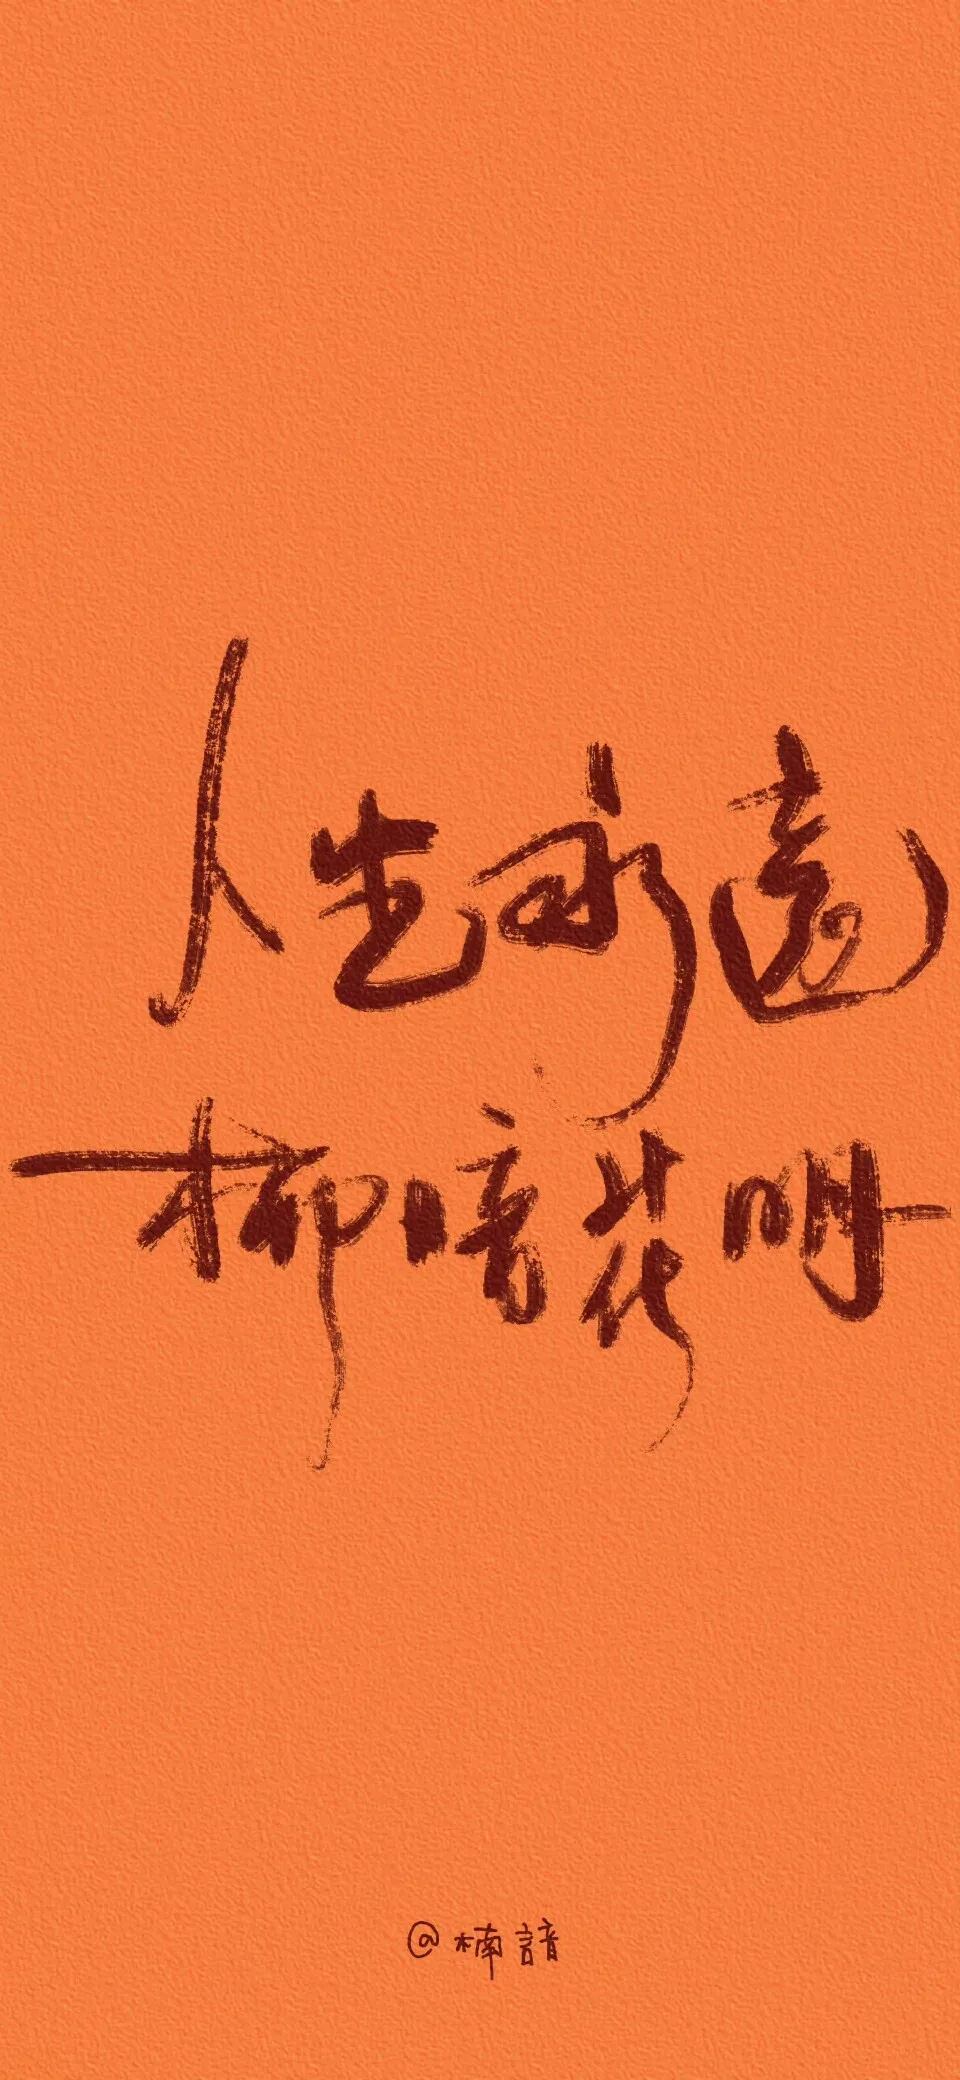 人生永遠
柳暗花明
@楠諳